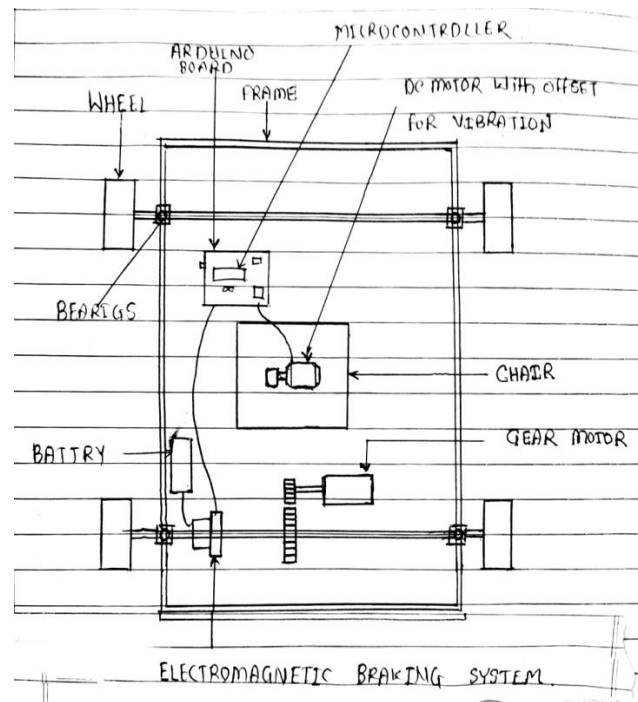 MICROCONTROLLER
ARDUINO
BOARD
FRAME
DC MOTOR With OFFSET
FOR VIBRATION
WHEEL
BEARIGS
CHAIR
GEAR MOTOR
BATTRY
ELECTROMAGNETIC BRAKING SYSTEM.